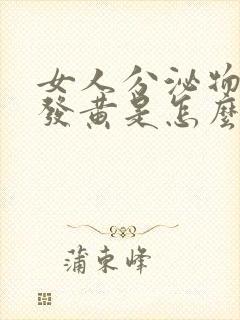 女人分泌物
發黃是怎麼
蒲東峰